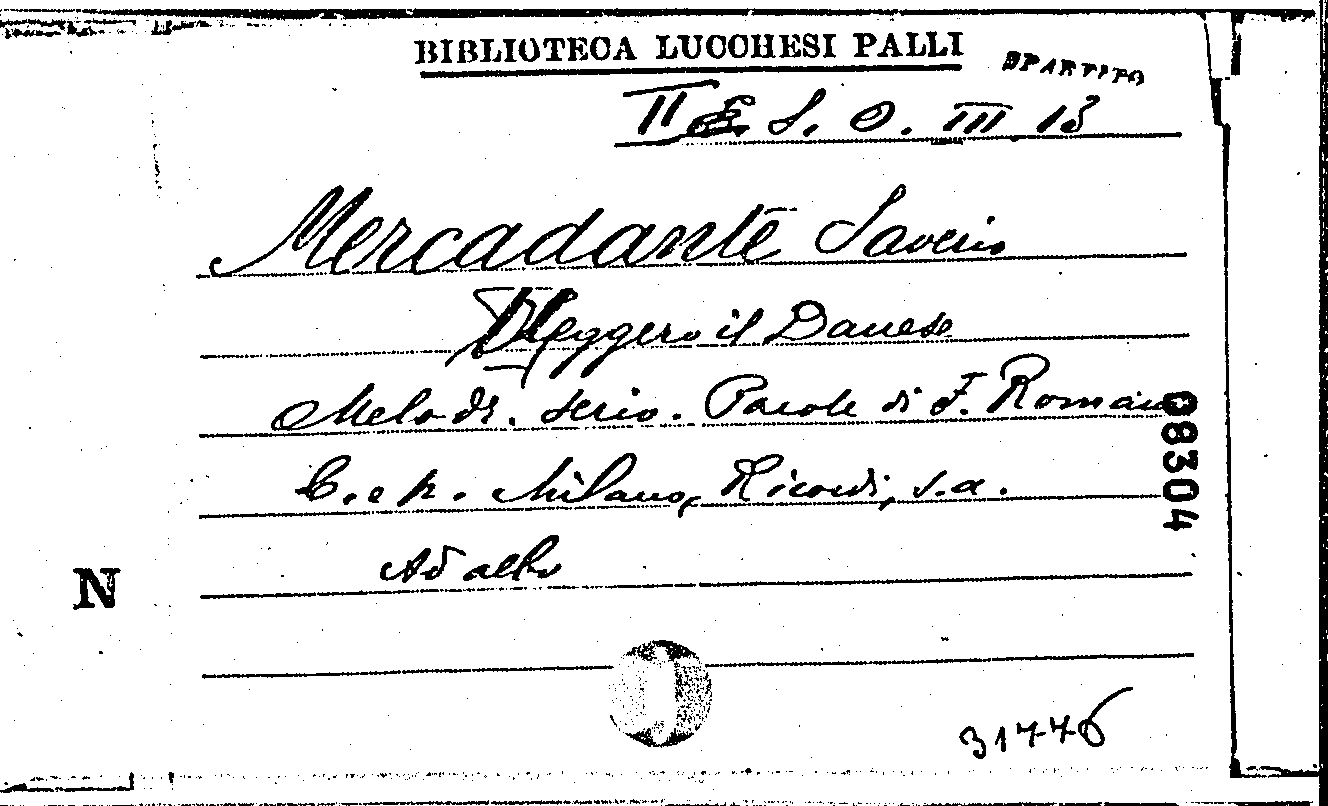 BIBLIOTECA LUCCHESI PALLI
SPARTITO
II S. O. III 13
Mercadante Saverio
Uggero il Danese
Melodr. serio. Parole di F. Romani
C. e p. Milano, Ricordi, s.a.
Ad albo
08304
N
31776